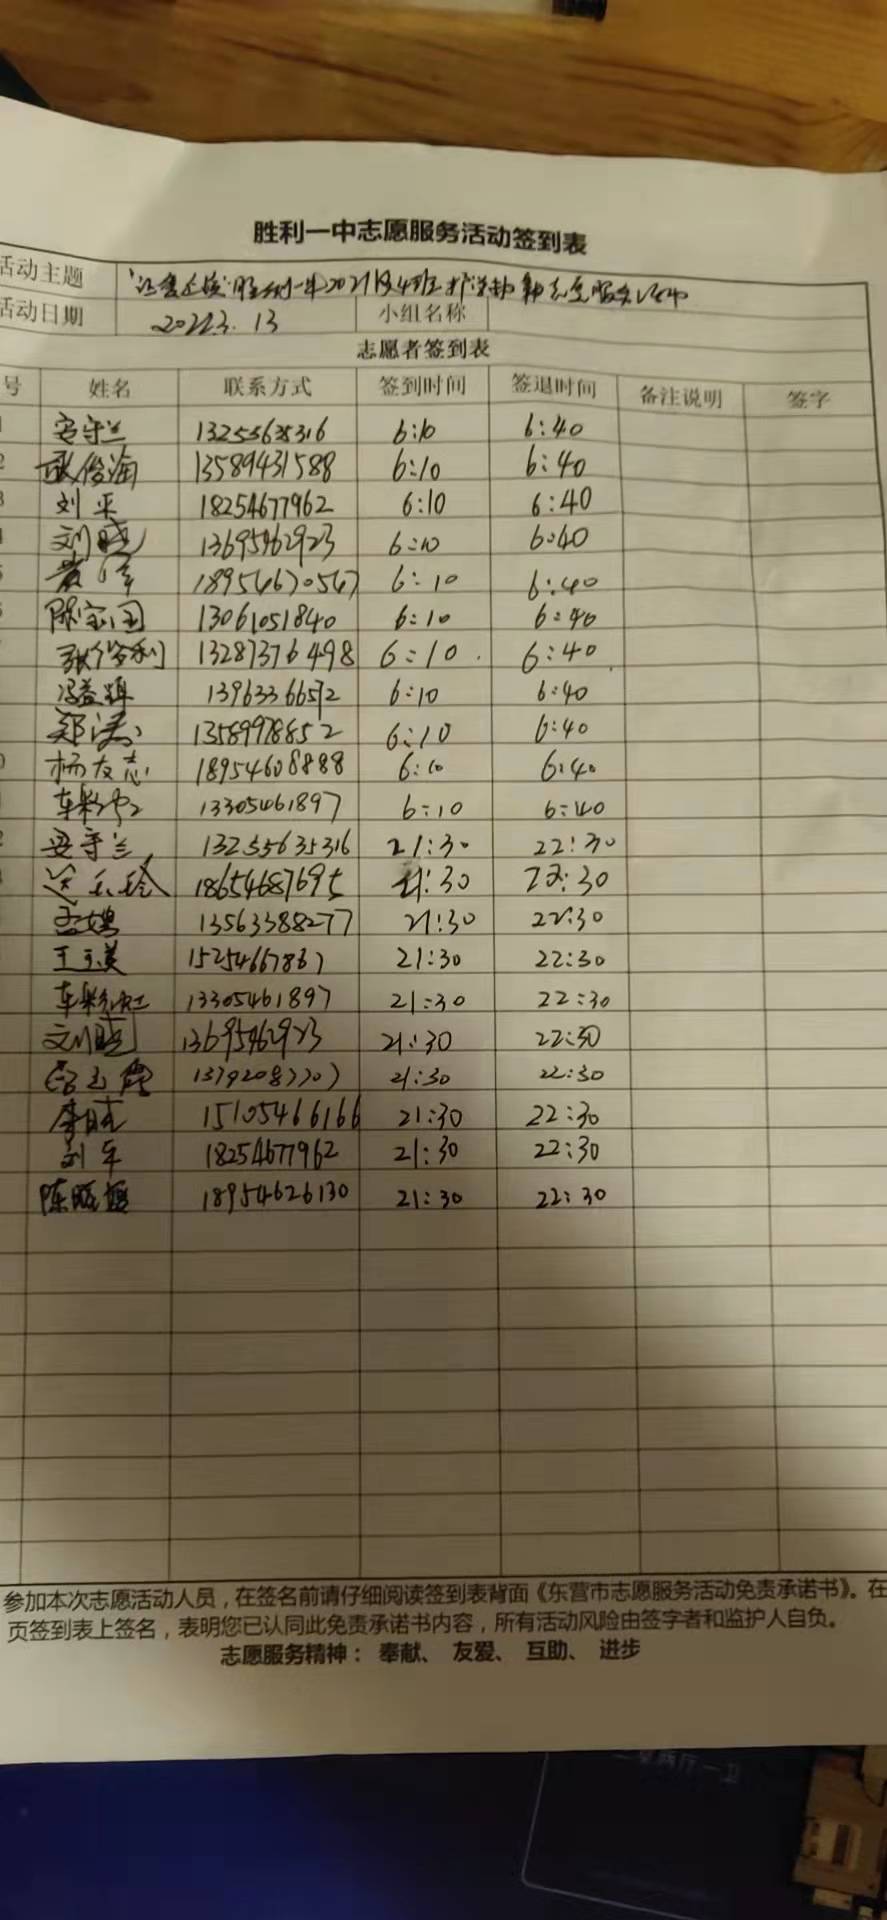 胜利一中志愿服务活动签到表
活动主题 胜利一中2021级4班 志愿服务活动
活动日期 2022.3.13 小组名称
志愿者签到表
号 姓名 联系方式 签到时间 签退时间 备注说明 签字
安守兰 13255635316 6:10 6:40
13589431588 6:10 6:40
刘平 18254677962 6:10 6:40
刘晓 13695462923 6:10 6:40
黄泽 18954670547 6:10 6:40
陈宝国 13061051840 6:10 6:40
张俊利 13287376498 6:10 6:40
冯益 13963366592 6:10 6:40
郑涛 13589978852 6:10 6:40
杨友志 18954608888 6:10 6:40
车彩虹 13305461897 6:10 6:40
安守兰 13255635316 21:30 22:30
18654687695 21:30 22:30
孟娟 13563388277 21:30 22:30
王玉英 15254667867 21:30 22:30
车彩虹 13305461897 21:30 22:30
刘晓 13695462923 21:30 22:30
21:30 22:30
15105466166 21:30 22:30
刘平 18254677962 21:30 22:30
陈 18954626130 21:30 22:30
参加本次志愿活动人员，在签名前请仔细阅读签到表背面《东营市志愿服务活动免责承诺书》。在
页签到表上签名，表明您已认同此免责承诺书内容，所有活动风险由签字者和监护人自负。
志愿服务精神：奉献、友爱、互助、进步